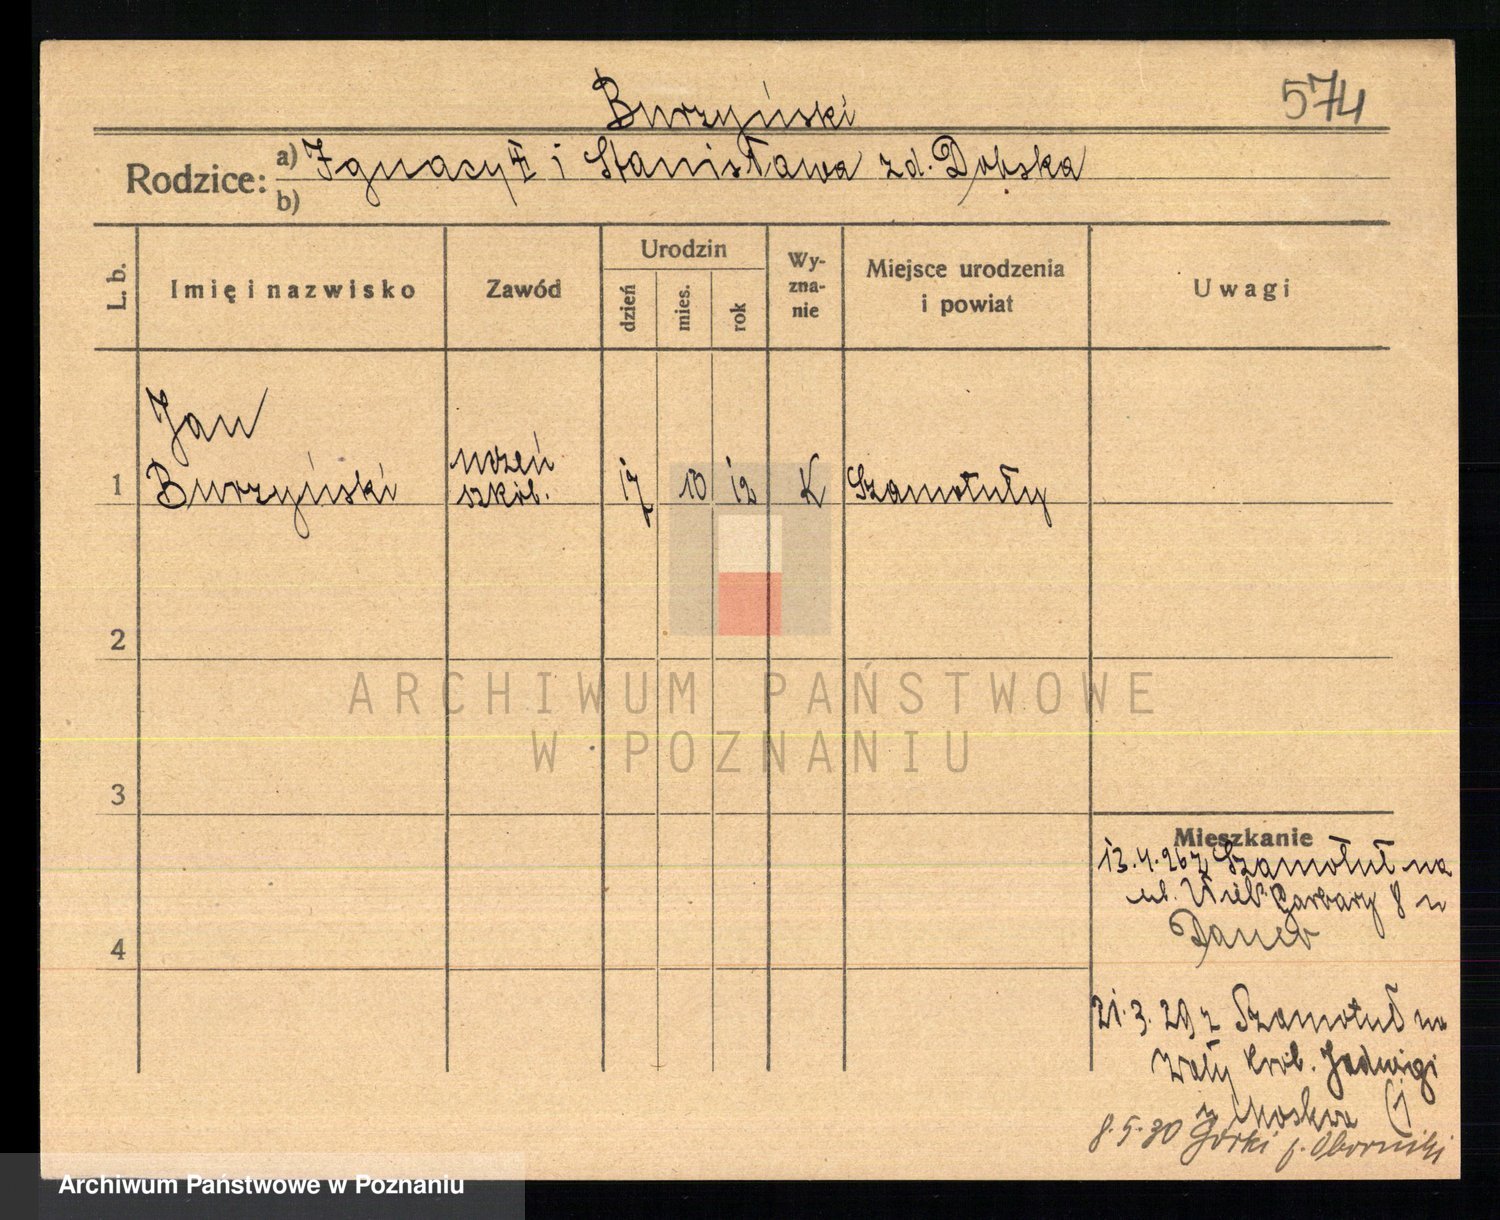 Burzyński
574
Rodzice:
a) Ignacy i Stanisława zd. Dobska
b)
L. b.
Imię i nazwisko
Zawód
Urodzin
dzień
mies.
rok
Wy-
zna-
nie
Miejsce urodzenia
i powiat
Uwagi
Jan
1 Burzyński
uczeń
szkół.
17 10 12 K Szamotuły
2
3
4
ARCHIWUM PAŃSTWOWE
W POZNANIU
Mieszkanie
13.4.26 z Szamotuł na
ul. Wiel. Garbary 8 u
21.3.29 z Szamotuł na
Wały Król. Jadwigi
8.5.30 Górki p. Oborniki
Archiwum Państwowe w Poznaniu